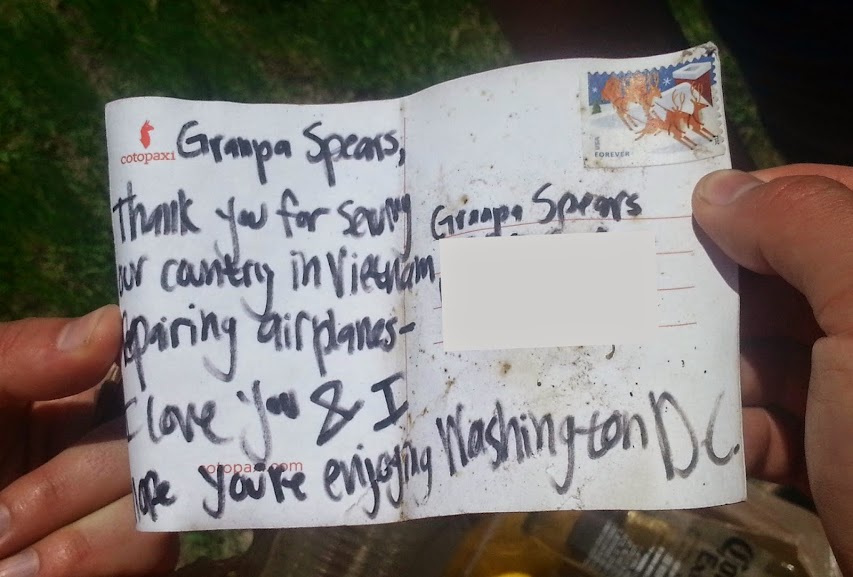 cotopaxi
Grampa Spears,
Thank you for serving
our country in Vietnam
repairing airplanes-
I love you & I
hope you're enjoying Washington DC.
cotopaxi.com
Grampa Spears
USA
FOREVER